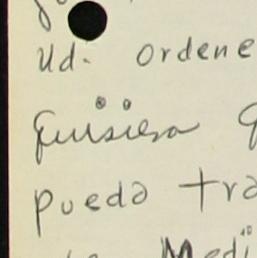 Ud. ordene
Quisiera q
puedo tra
Medi